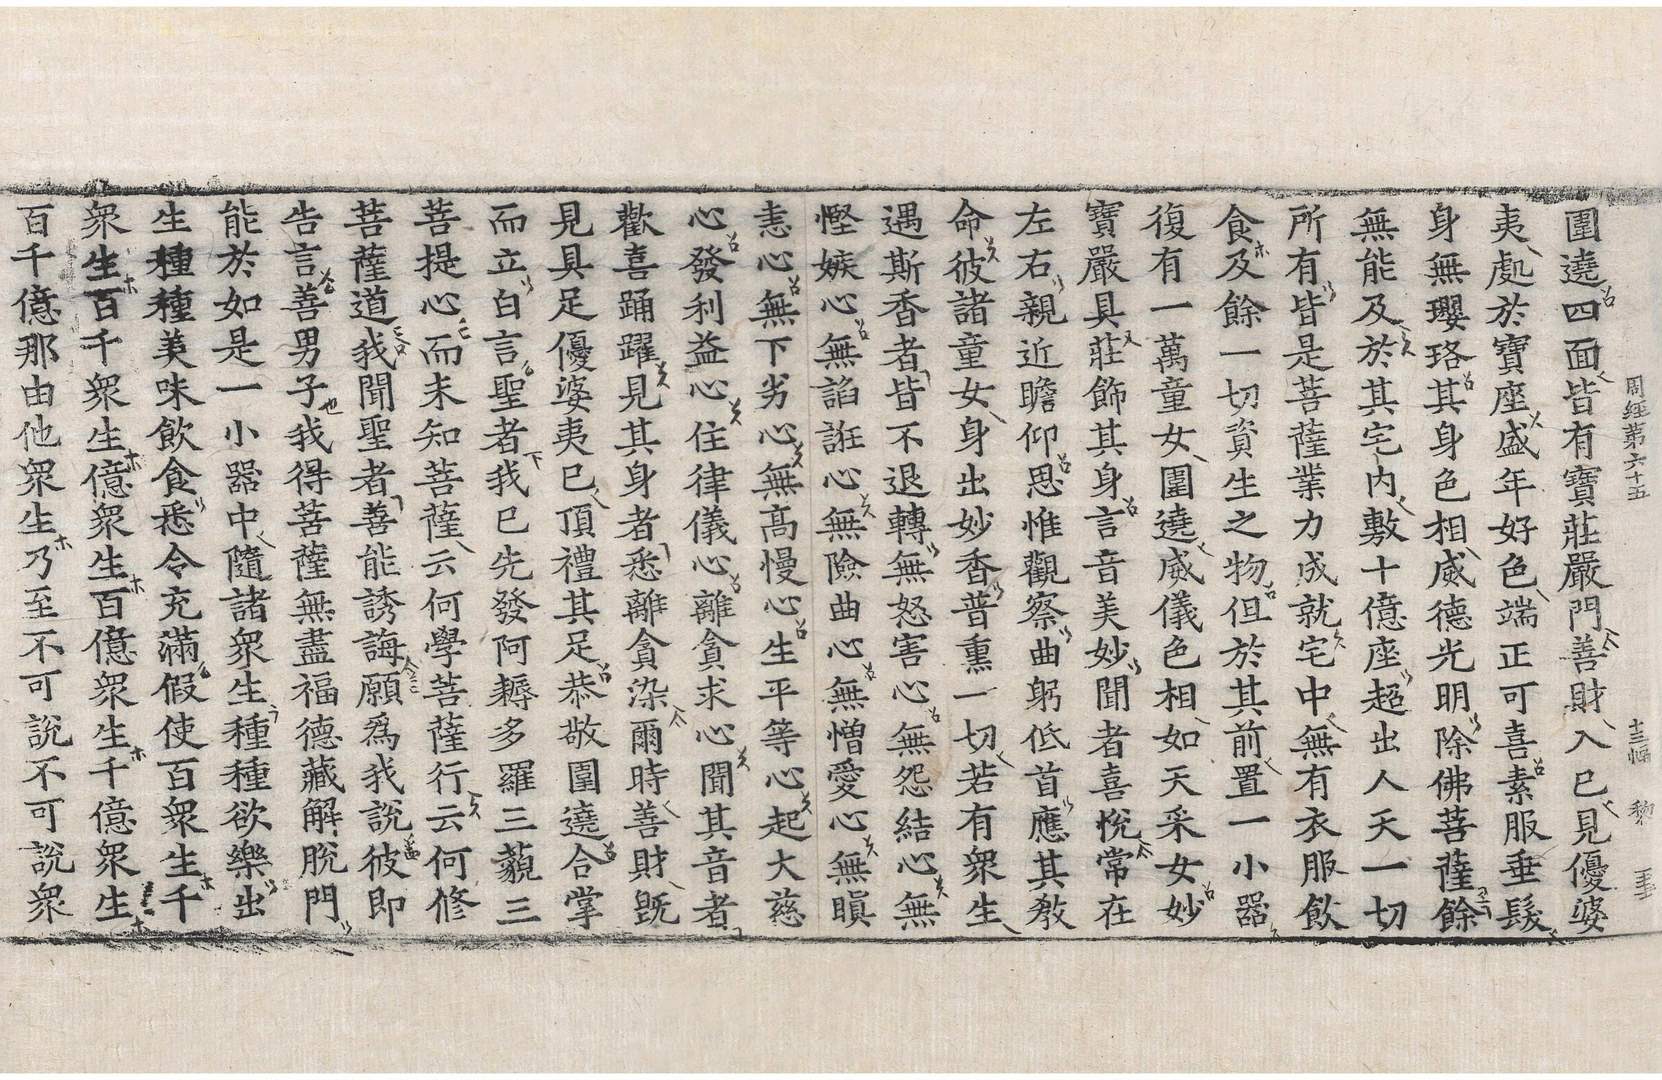 周經第六十五 十三幅 黎
圍遶四面皆有寶莊嚴門善財入已見優婆
夷處於寶座盛年好色端正可喜素服垂髮
身無瓔珞其身色相威德光明除佛菩薩餘
無能及於其宅內敷十億座超出人天一切
所有皆是菩薩業力成就宅中無有衣服飲
食及餘一切資生之物但於其前置一小器
復有一萬童女圍遶威儀色相如天采女妙
寶嚴具莊飾其身言音美妙聞者喜悅常在
左右親近瞻仰思惟觀察曲躬低首應其教
命彼諸童女身出妙香普熏一切若有眾生
遇斯香者皆不退轉無怒害心無怨結心無
慳嫉心無諂誑心無險曲心無憎愛心無瞋
恚心無下劣心無高慢心生平等心起大慈
心發利益心住律儀心離貪求心聞其音者
歡喜踊躍見其身者悉離貪染爾時善財既
見具足優婆夷已頂禮其足恭敬圍遶合掌
而立白言聖者我已先發阿耨多羅三藐三
菩提心而未知菩薩云何學菩薩行云何修
菩薩道我聞聖者善能誘誨願為我說彼即
告言善男子我得菩薩無盡福德藏解脫門
能於如是一小器中隨諸眾生種種欲樂出
生種種美味飲食悉令充滿假使百眾生千
眾生百千眾生億眾生百億眾生千億眾生
百千億那由他眾生乃至不可說不可說眾